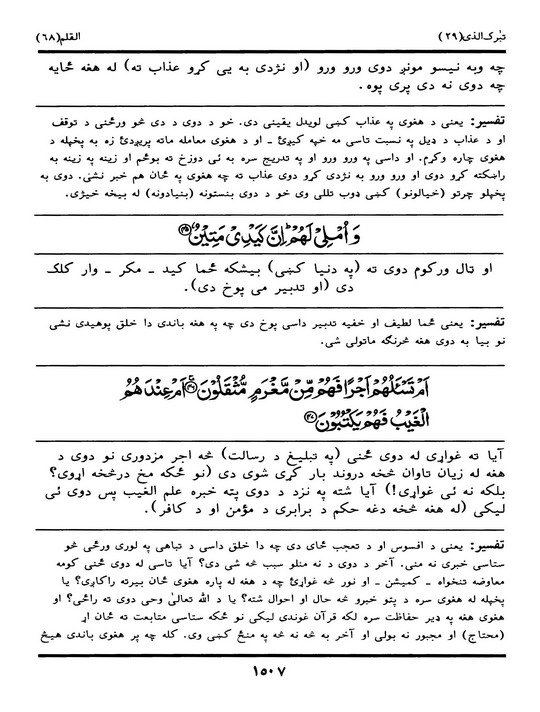 تبٰرک الذی (۲۹) القلم (۶۸)
چه وبه نیسو مونږ دوی ورو ورو (او نژدی به یی کړو عذاب ته) له هغه ځایه
چه دوی نه دی پری پوه.
تفسیر: یعنی د هغوی په عذاب کښی لویدل یقینی دی. خو د دوی د دی څو ورځنی د توقف
او د عذاب د ډیل په نسبت تاسی مه خپه کیږئ ـ او د هغوی معامله ماته پریږدئ زه به پخپله د
هغوی چاره وکړم. او داسی په ورو ورو او په تدریج سره به ئی دوزخ ته بوځم او زینه په زینه به
راښکته کړو دوی او ورو ورو به نژدی کړو دوی عذاب ته چه هغوی په ځان هم خبر نشی. دوی به
پخپلو چرتو (خیالونو) کښی ډوب تللی وی خو د دوی بنستونه (بنیادونه) له بیخه خیژی.
وَاُمْلِیْ لَهُمْ ؕ اِنَّ كَیْدِیْ مَتِیْنٌ ﴿۴۵﴾
او ټال ورکوم دوی ته (په دنیا کښی) بیشکه ځما کید ـ مکر ـ وار کلک
دی (او تدبیر می پوخ دی).
تفسیر: یعنی ځما لطیف او خفیه تدبیر داسی پوخ دی چه په هغه باندی دا خلق پوهیدی نشی
نو بیا به دوی هغه څرنگه ماتولی شی.
اَمْ تَسْـَٔلُهُمْ اَجْرًا فَهُمْ مِّنْ مَّغْرَمٍ مُّثْقَلُوْنَ ﴿۴۶﴾ اَمْ عِنْدَهُمُ
الْغَیْبُ فَهُمْ یَكْتُبُوْنَ ﴿۴۷﴾
آیا ته غواړی له دوی ځنی (په تبلیغ د رسالت) څه اجر مزدوری نو دوی د
هغه له زیان تاوان څخه دروند بار کړی شوی دی (نو ځکه مخ درڅخه اړوی؟
بلکه نه ئی غواړی!) آیا شته په نزد د دوی پته خبره علم الغیب پس دوی ئی
لیکی (له هغه څخه دغه حکم د برابری د مؤمن او د کافر).
تفسیر: یعنی د افسوس او د تعجب ځای دی چه دا خلق داسی د تباهی په لوری ورځی خو
ستاسی خبری نه منی. آخر د دوی د نه منلو سبب څه شی دی؟ آیا تاسی له دوی ځنی کومه
معاوضه تنخواه ـ کمیشن ـ او نور څه غواړئ چه د هغه له پاره هغوی ځان بیرته راکاږی؟ یا
پخپله له هغوی سره د پتو خبرو څه حال او احوال شته؟ یا د الله تعالیٰ وحی دوی ته راځی؟ او
هغوی هغه په ډیر حفاظت سره لکه قرآن غوندی لیکی نو ځکه ستاسی متابعت ته ځان اړ
(محتاج) او مجبور نه بولی او آخر به څه نه څه په منځ کښی وی. کله چه پر هغوی باندی هیڅ
۱۵۰۷